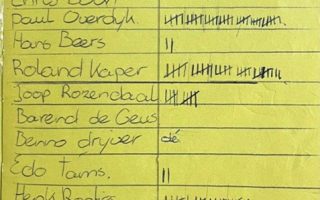 Paul Overdyk.
Hans Beers
Roland Kaper
Joop Rozendaal
Barend de Geus
Benno drijver dé
Edo Tams.
Henk